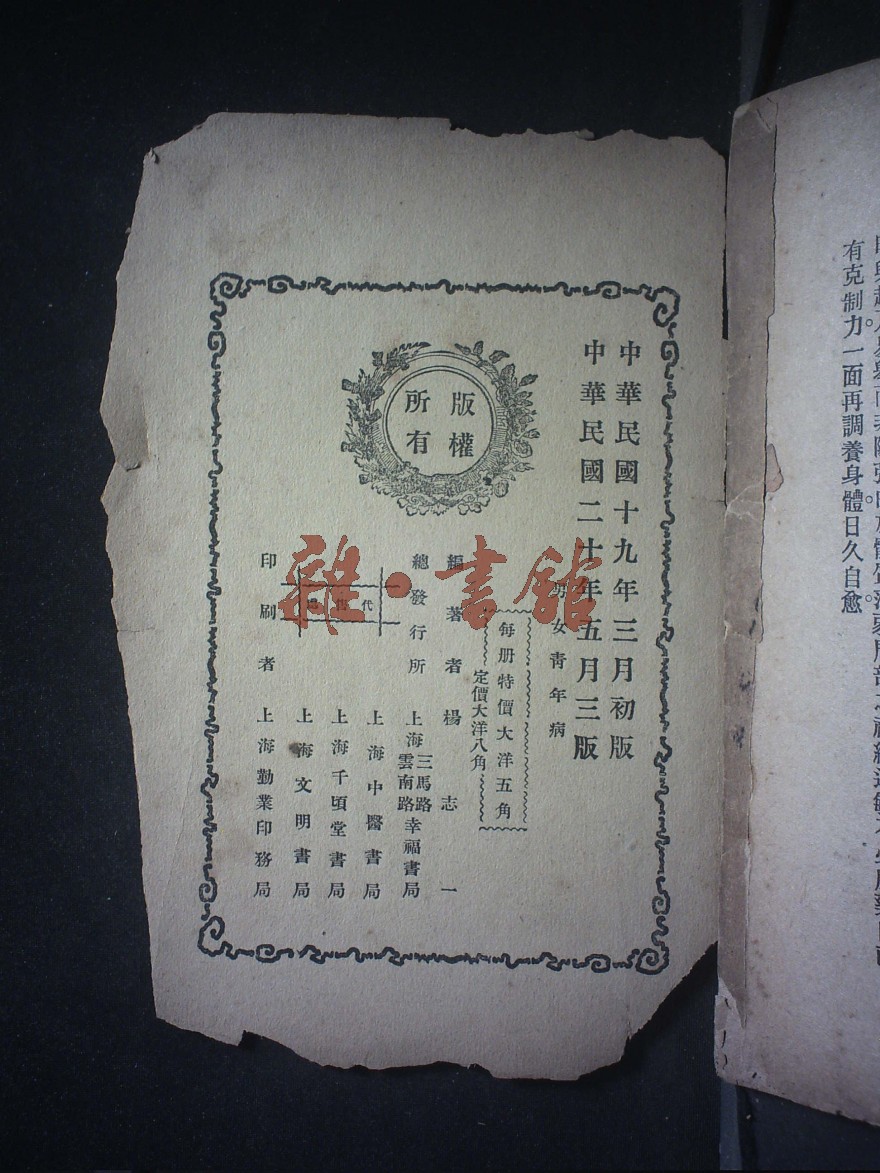 有克制力一面再調養身體日久自愈。
中華民國十九年三月初版
中華民國二十年五月三版
男女青年病
每册特價大洋五角
定價大洋八角
版權
所有
編著者楊志一
總發行所 上海三馬路雲南路幸福書局
代售處
上海中醫書局
上海千頃堂書局
上海文明書局
印刷者 上海勤業印務局
雜·書館